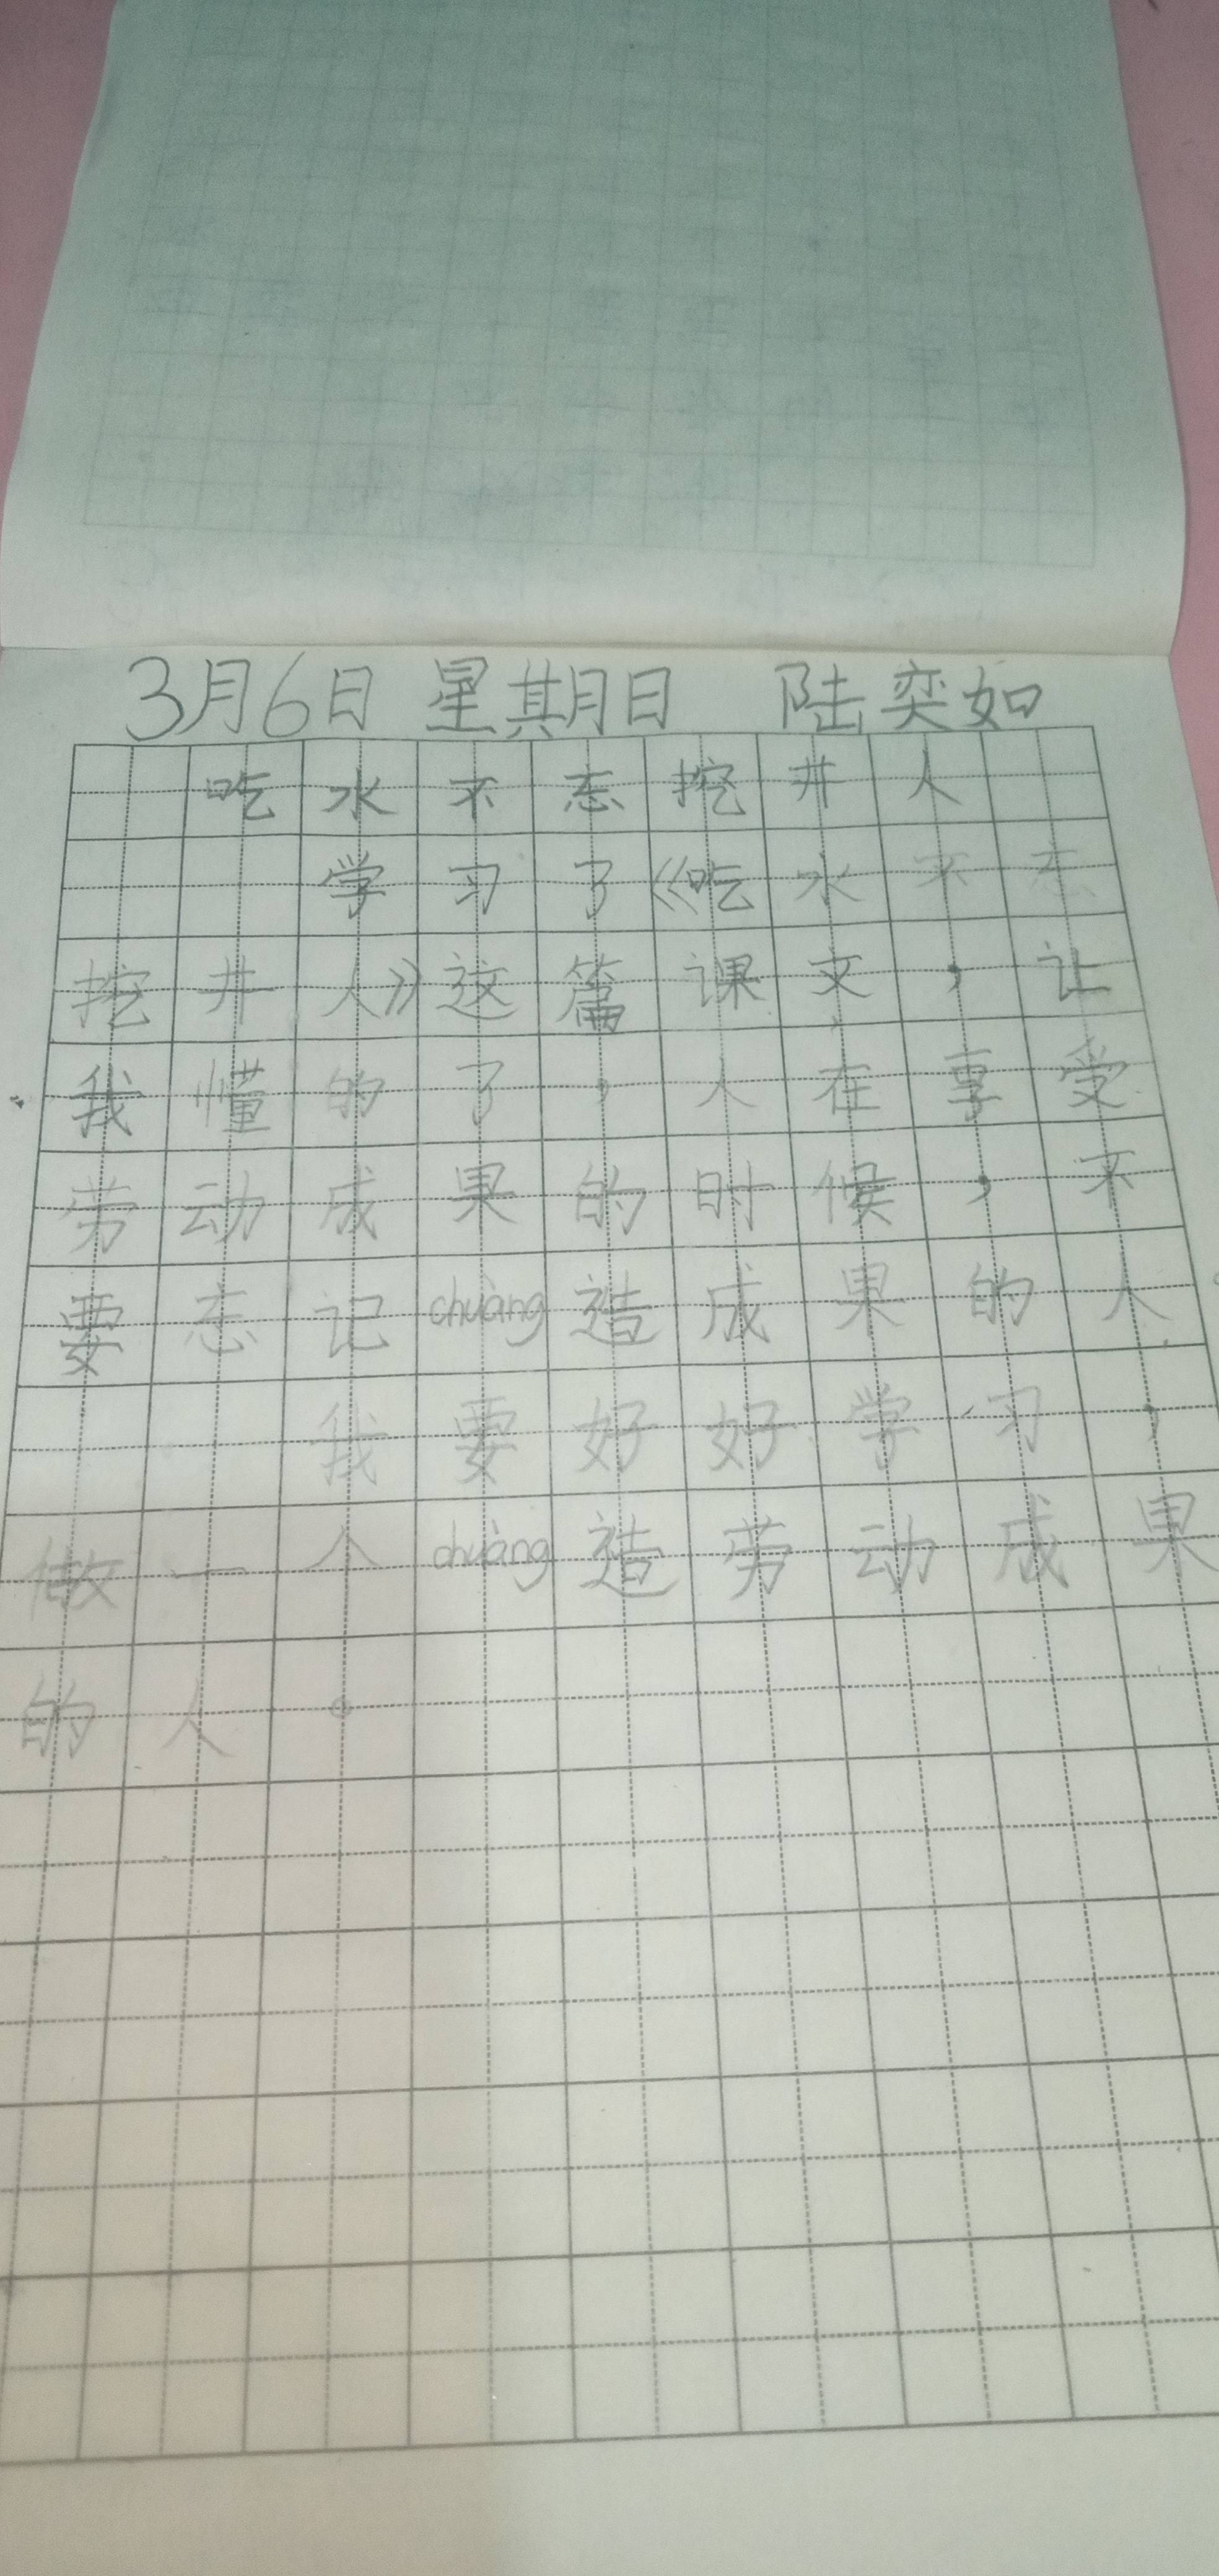 3月6日 星期日 陆奕如
吃水不忘挖井人
学习了《吃水不忘
挖井人》这篇课文，让
我懂的了，人在享受
劳动成果的时候，不
要忘记chuàng造成果的人。
我要好好学习，
做一个chuàng造劳动成果
的人。